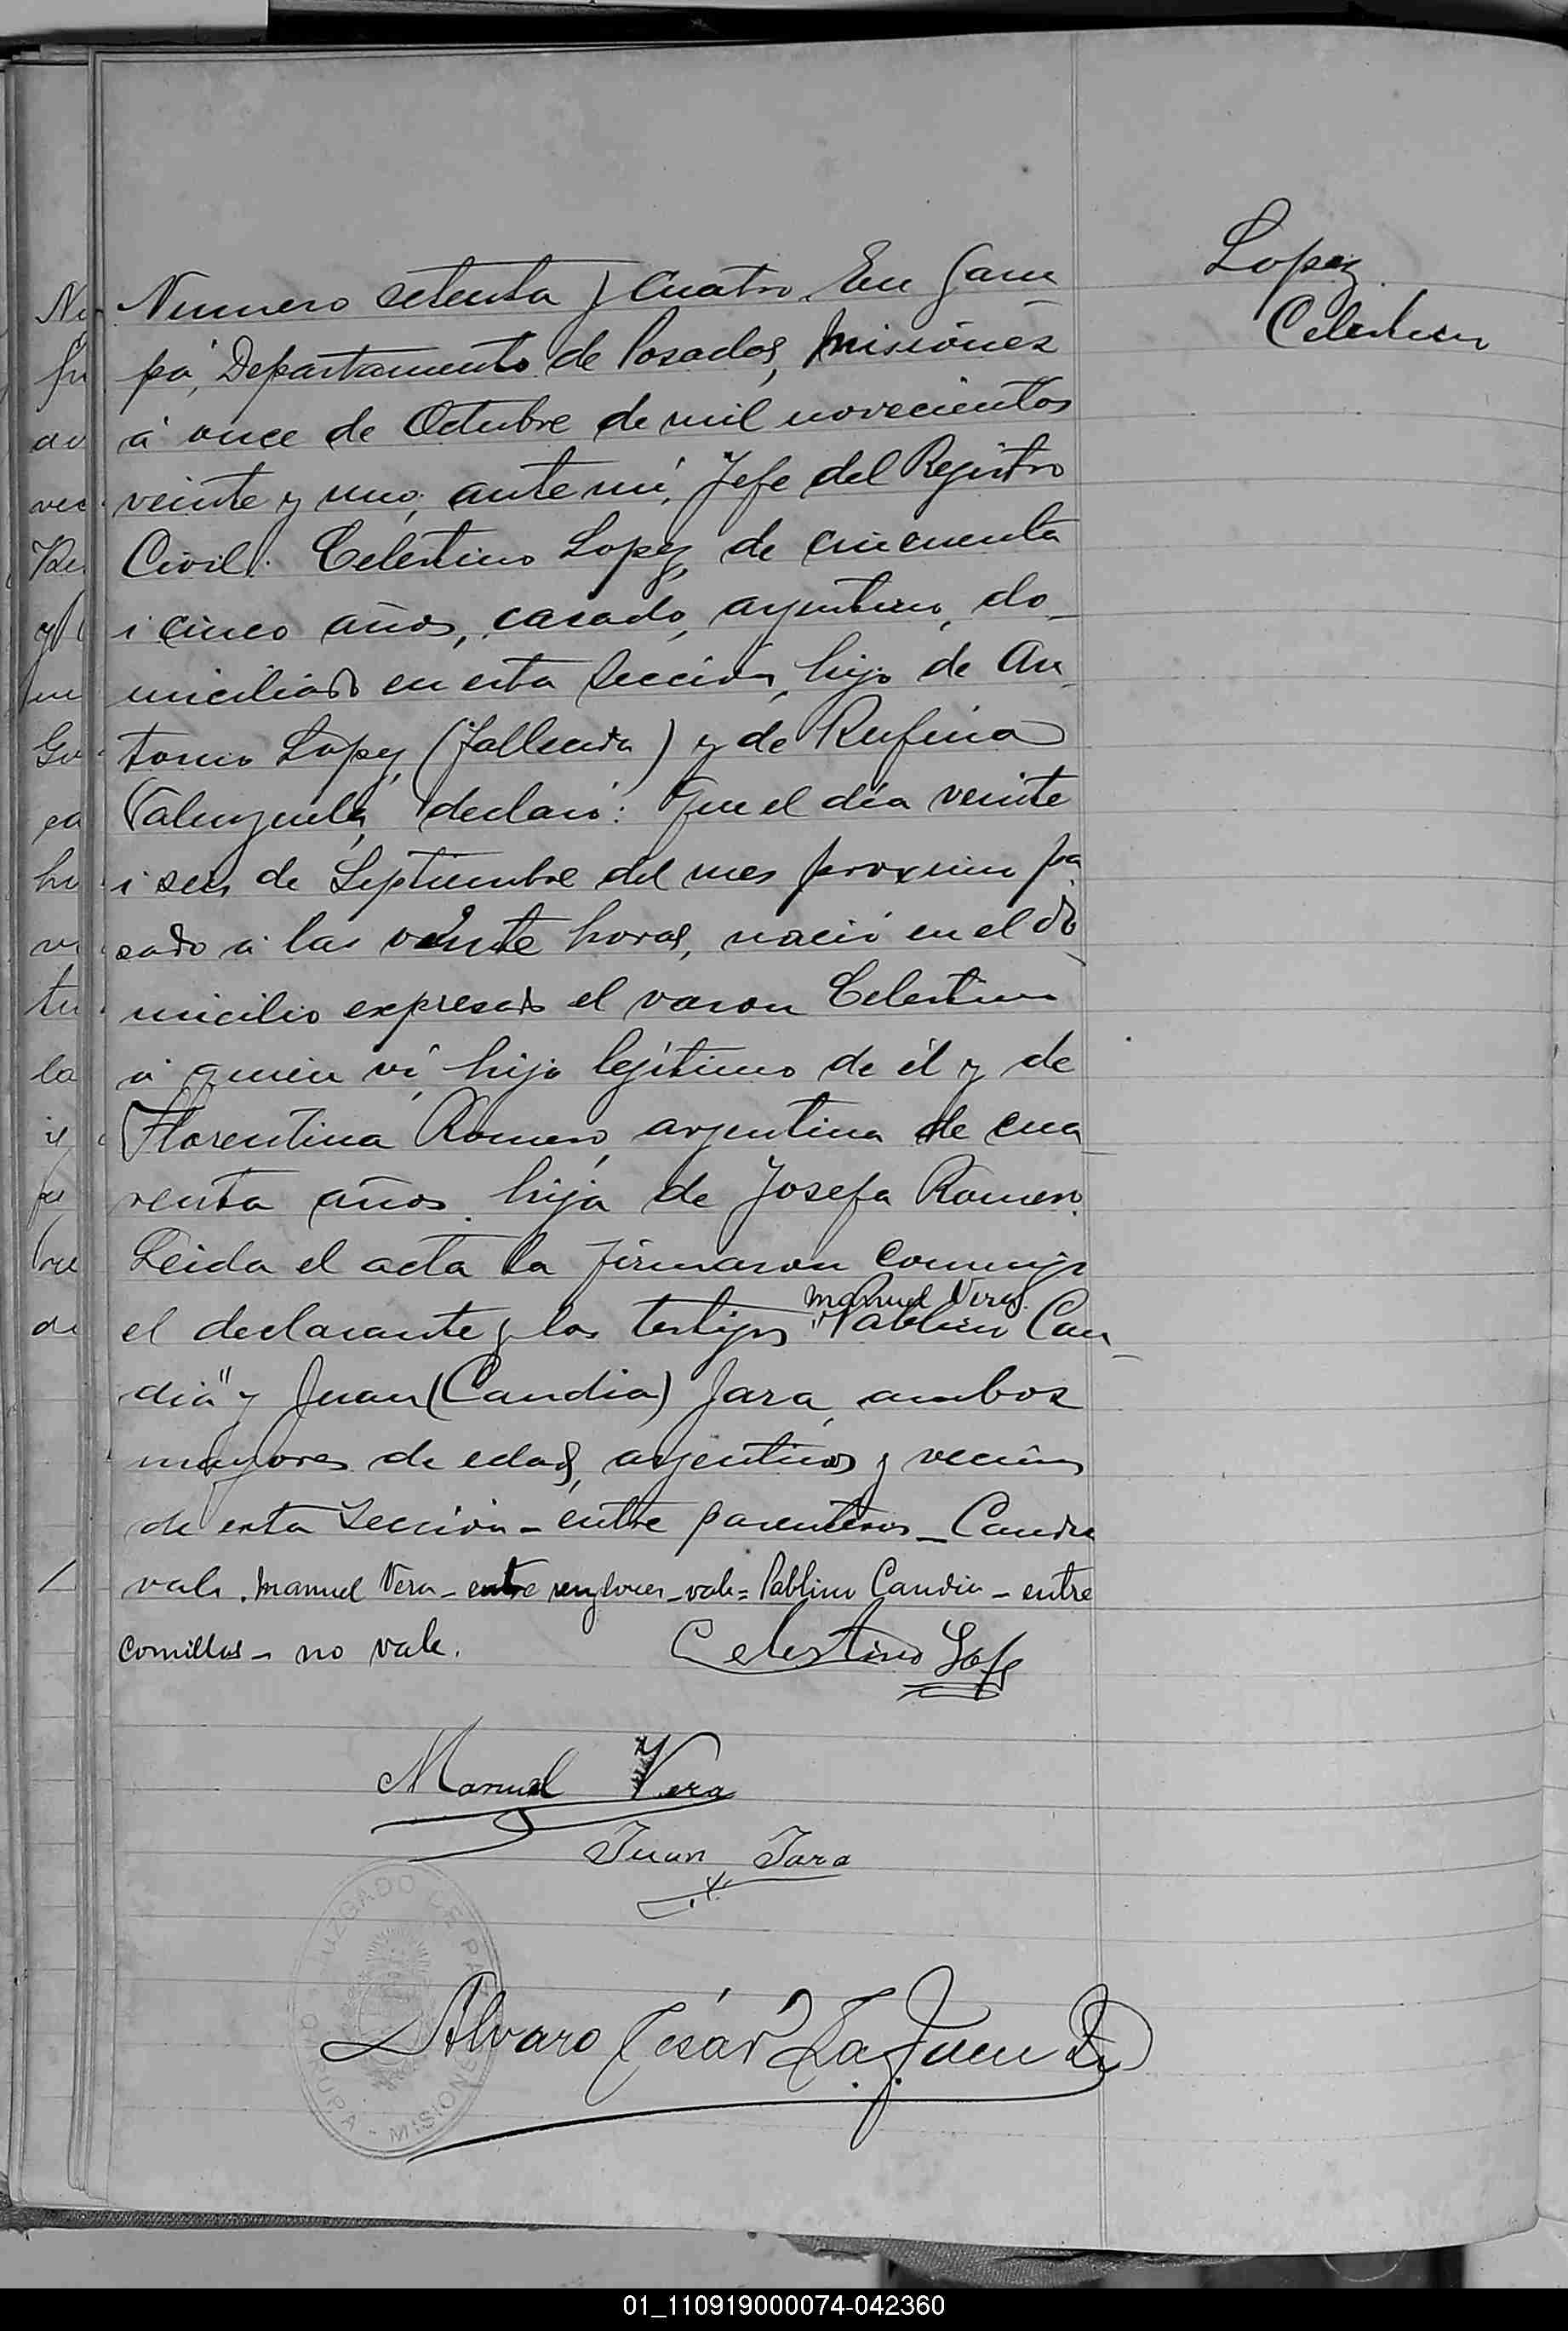 Lopez
Celestino
Numero setenta y cuatro. En Garu-
pá, Departamento de Posadas, Misiones
á once de Octubre de mil novecientos
veinte y uno, ante mi, Jefe del Registro
Civil: Celestino Lopez, de cincuenta
i cinco años, casado, argentino, do-
miciliado en esta Sección, hijo de An-
tonio Lopez, (fallecido) y de Rufina
Valenzuela, declaró: Que el día veinte
i seis de Septiembre del mes proximo pa
sado á las veinte horas, nació en el do-
micilio expresado el varon Celestino
á quien ví, hijo legítimo de él y de
Florentina Romero, argentina de cua-
renta años, hija de Josefa Romero.
Leida el acta la firmaron conmigo
Manuel Vera
el declarante y los testigos "Pablino Can-
dia" y Juan (Candia) Jara, ambos
mayores de edad, argentinos y vecinos
de esta Sección - entre parentesis - Candia
vale. Manuel Vera - entre renglones - vale = Pablino Candia - entre
comillas - no vale.
Celestino Lope
Manuel Vera
Juan Jara
JUZGADO DE PAZ
GARUPA - MISIONES
Alvaro César
01_110919000074-042360